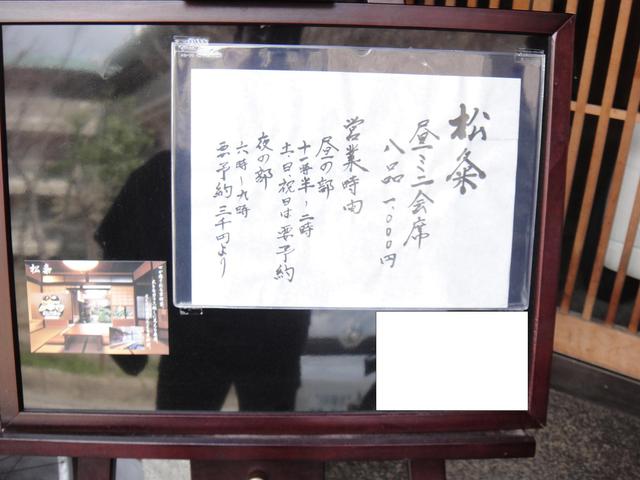 松粂
昼ミニ会席
八品 一、〇〇〇円
営業時間
昼の部
十一時半〜二時
土・日・祝日は要予約
夜の部
六時〜九時
要予約 三千円より
松粂